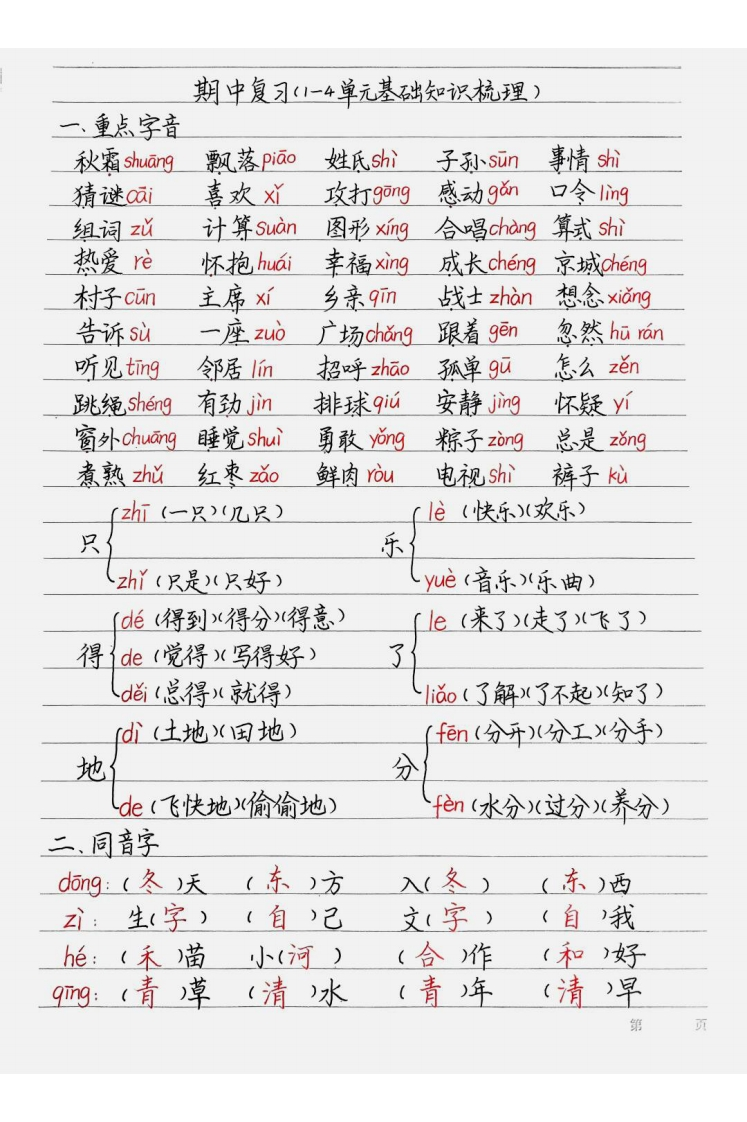 期中复习(1-4单元基础知识梳理)
一、重点字音
秋霜shuāng 飘落piāo 姓氏shì 子孙sūn 事情shì
猜谜cāi 喜欢xǐ 攻打gōng 感动gǎn 口令lìng
组词zǔ 计算suàn 图形xíng 合唱chàng 算式shì
热爱rè 怀抱huái 幸福xìng 成长chéng 京城chéng
村子cūn 主席xí 乡亲qīn 战士zhàn 想念xiǎng
告诉sù 一座zuò 广场chǎng 跟着gēn 忽然hū rán
听见tīng 邻居lín 招呼zhāo 孤单gū 怎么zěn
跳绳shéng 有劲jìn 排球qiú 安静jìng 怀疑yí
窗外chuāng 睡觉shuì 勇敢yǒng 粽子zòng 总是zǒng
煮熟zhǔ 红枣zǎo 鲜肉ròu 电视shì 裤子kù
zhī(一只)(几只) lè(快乐)(欢乐)
只 乐
zhǐ(只是)(只好) yuè(音乐)(乐曲)
dé(得到)(得分)(得意) le(来了)(走了)(飞了)
得 de(觉得)(写得好) 了
děi(总得)(就得) liǎo(了解)(了不起)(知了)
dì(土地)(田地) fēn(分开)(分工)(分手)
地 分
de(飞快地)(偷偷地) fèn(水分)(过分)(养分)
二、同音字
dōng:(冬)天 (东)方 入(冬) (东)西
zì:生(字) (自)己 文(字) (自)我
hé:(禾)苗 小(河) (合)作 (和)好
qīng:(青)草 (清)水 (青)年 (清)早
第 页